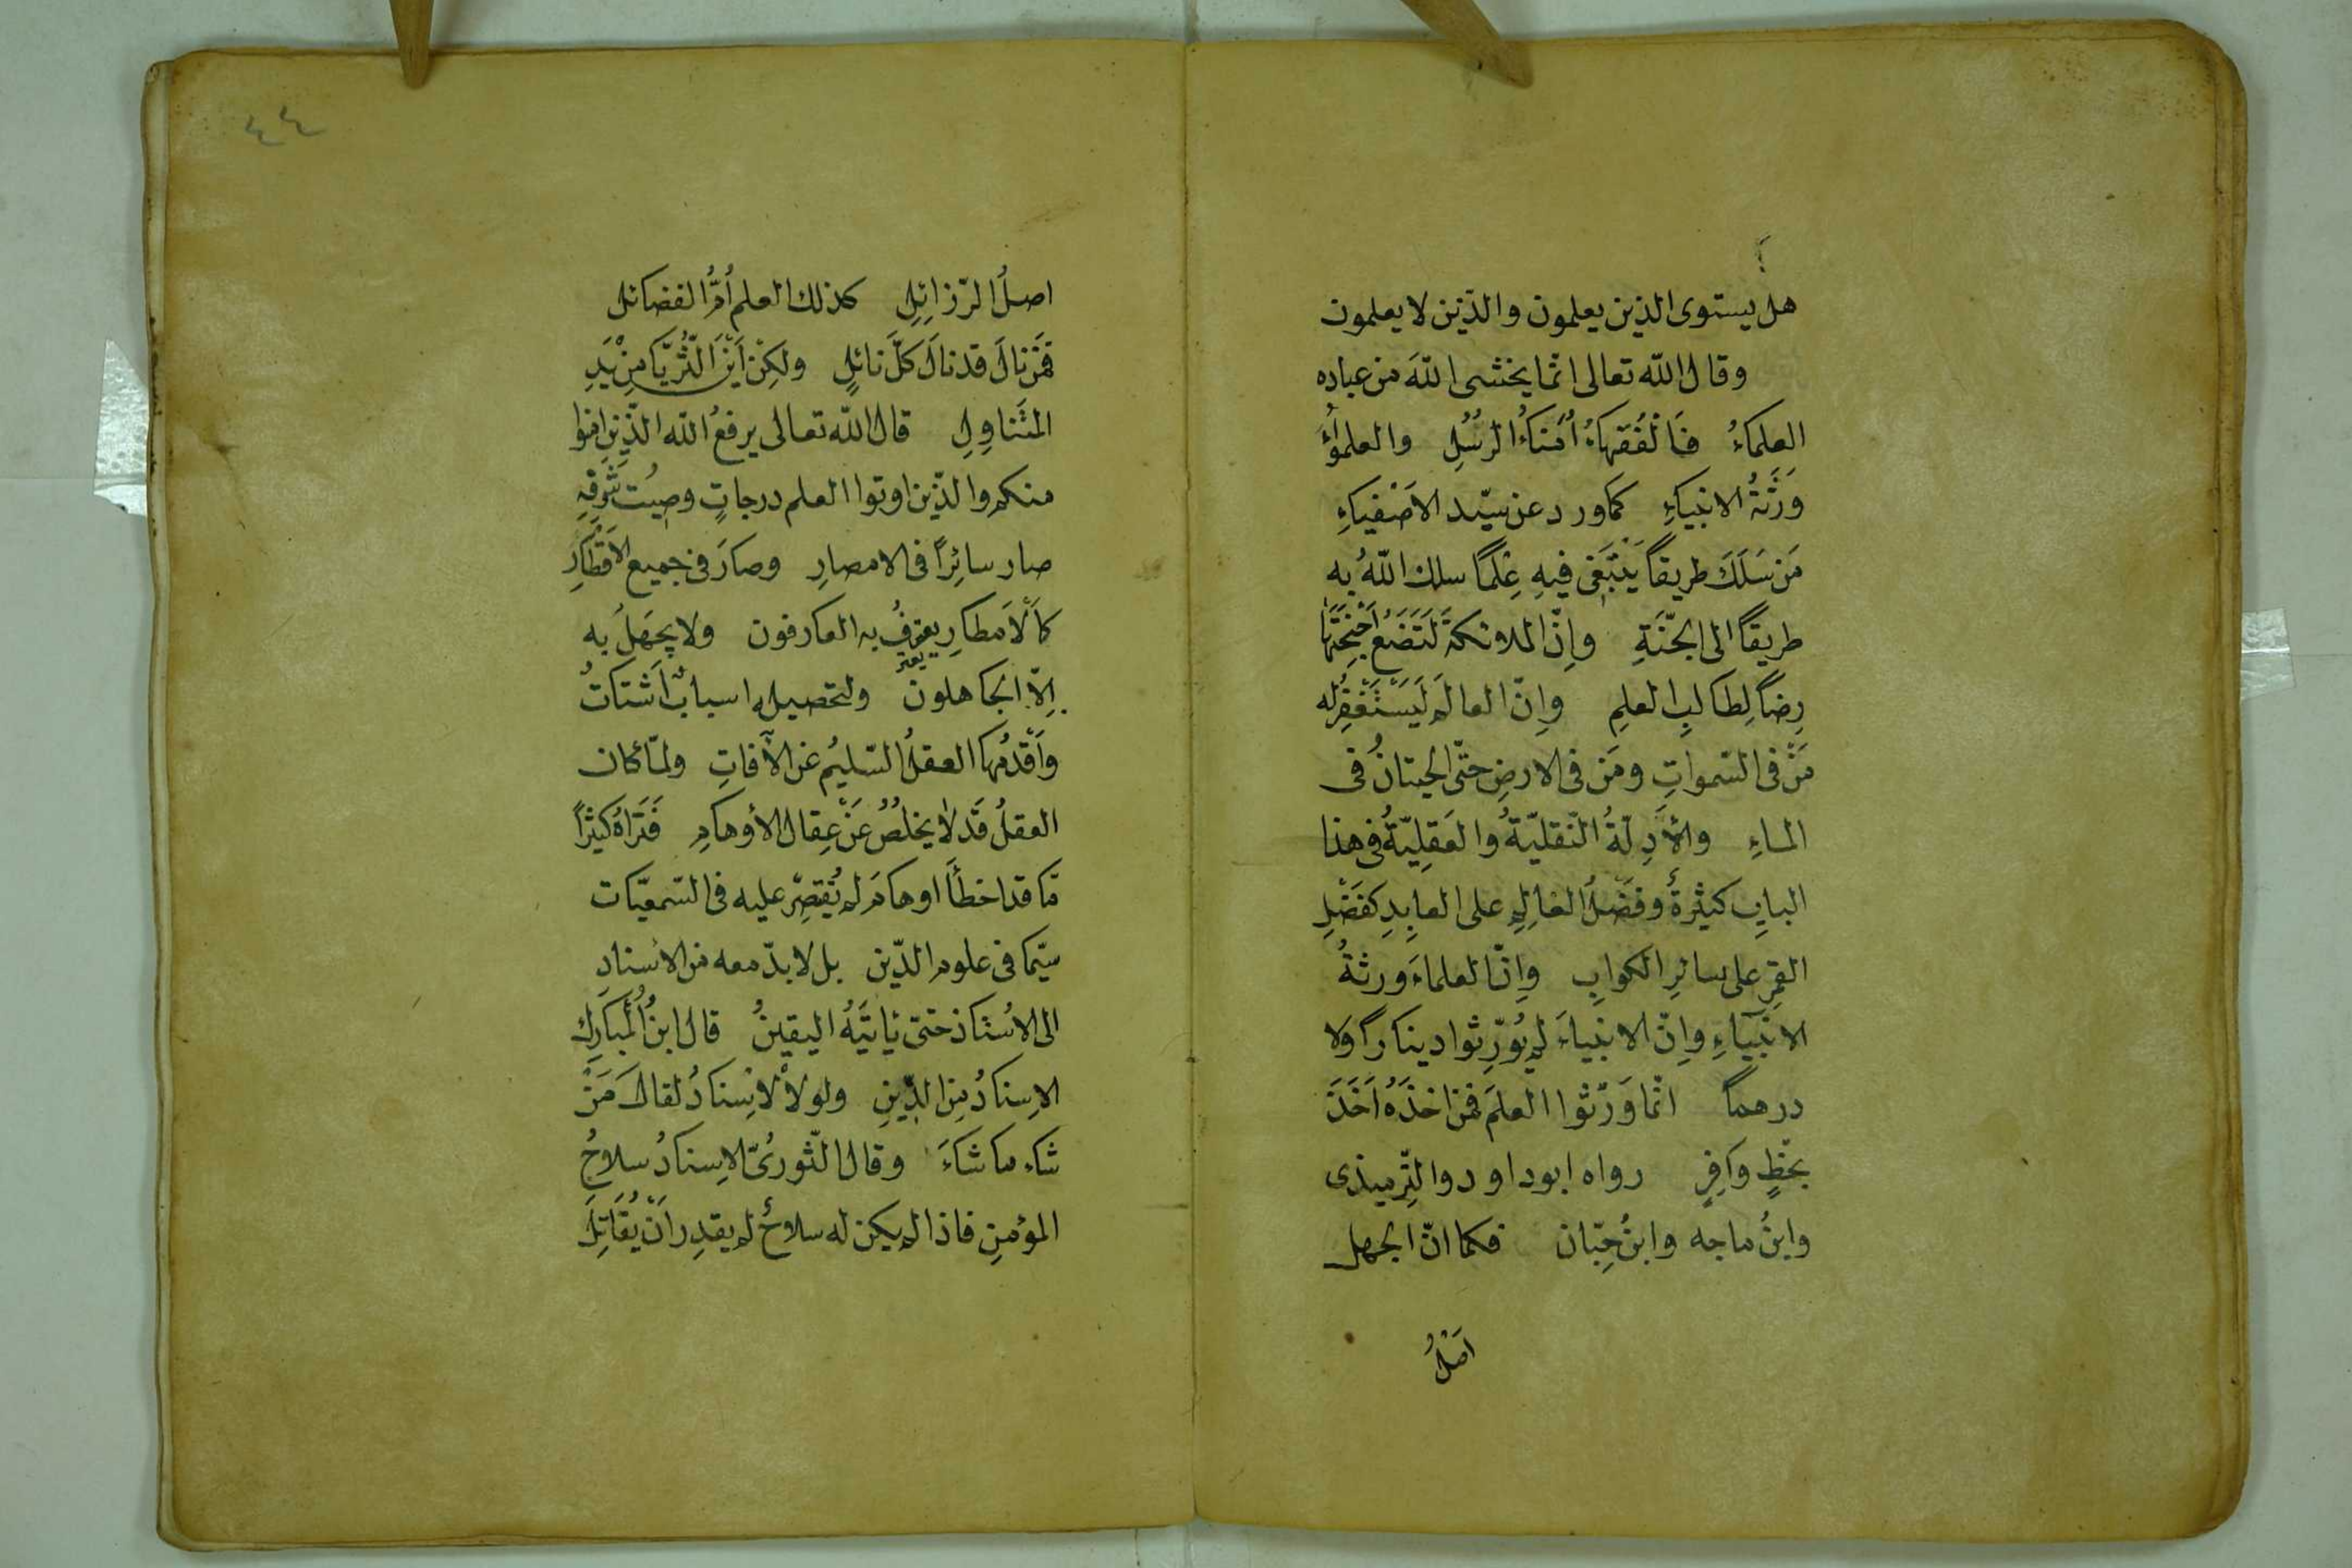 هل يستوى الذين يعلمون والذين لا يعلمون
وقال الله تعالى انما يخشى الله من عباده
العلماءُ فَالْفُقَهاءُ اُمَناءُ الرُسُلِ والعلمؤاءُ
وَرَثَةُ الانبياءِ كما ورد عن سيّد الاَصْفياءِ
مَن سَلَكَ طريقاً يَبْتَغى فيهِ عِلْمًا سلك اللهُ به
طريقاً الى الجنّةِ واِنّ الملائكةَ لَتَضَعُ اَجْنِحَتَها
رِضًا لِطالبِ العلمِ واِنّ العالم لَيَسْتَغْفِرُ له
مَنْ فى السّمواتِ ومَن فى الارضِ حتّى الحيتانُ فى
الماءِ والأَدِلّةُ النّقليّةُ والعَقِليّةُ فى هذا
البابِ كثيرةٌ وفَضْلُ العالِمِ على العابِدِ كفَضْلِ
القمرِ على سائرِ الكوابِ واِنّ العلماءَ ورثةُ
الانبياءِ واِنّ الانبياءَ لم يُوَرِّثوا ديناراً ولا
درهماً انّما وَرّثوا العلمَ فمن اخذَهُ اَخَذَ
بحظٍّ وافرٍ رواه ابو داود والتِّرميذى
وابنُ ماجه وابنُ حِبّان فكما انّ الجهل
اَصْلُ
٤٤
اصلُ الرّزائِلِ كذلك العلم اُمُّ الفضائل
فمَنْ نالَ قد نالَ كلَّ نائلٍ ولكِنْ اَيْنَ الثُّريّا مِنْ يَدِ
المتَناوِلِ قال الله تعالى يرفعُ الله الّذين امنوا
منكم والذّين اوتوا العلم درجاتٍ وصِيْت شَرَفِهِ
صار سائِراً فى الامصارِ وصارَ فى جميع الاَقْطارِ
كاَلْاَمطارِ يعترفُ به العارفون ولا يجهَلُ به
يعتر
اِلاّ الجاهلون ولتحصيله اسبابٌ اَشتاتٌ
واَقْدَمُها العقلُ السّليمُ عن الآفاتِ ولمّا كان
العقلُ قَد لا يخلُصُ عَنْ عِقال الأوهامِ فَتَراهُ كثيرًا
مّا قد اخطأَ اوهامَ لم يُقصِّر عليه فى السّمعيّات
سيّما فى علوم الدّين بل لا بدّ معه من الاسنادِ
الى الاُستاذ حتى يأتيَهُ اليقينُ قال ابنُ الْمُبارَك
الاِسنادُ مِنَ الدِّينِ ولولا الاِسنادُ لقالَ مَنْ
شاء ما شاءَ وقال الثّورىُّ الاِسنادُ سلاحُ
المؤمِنِ فاذا لم يكن له سلاحٌ لم يقدِر اَنْ يُقَاتِلَ